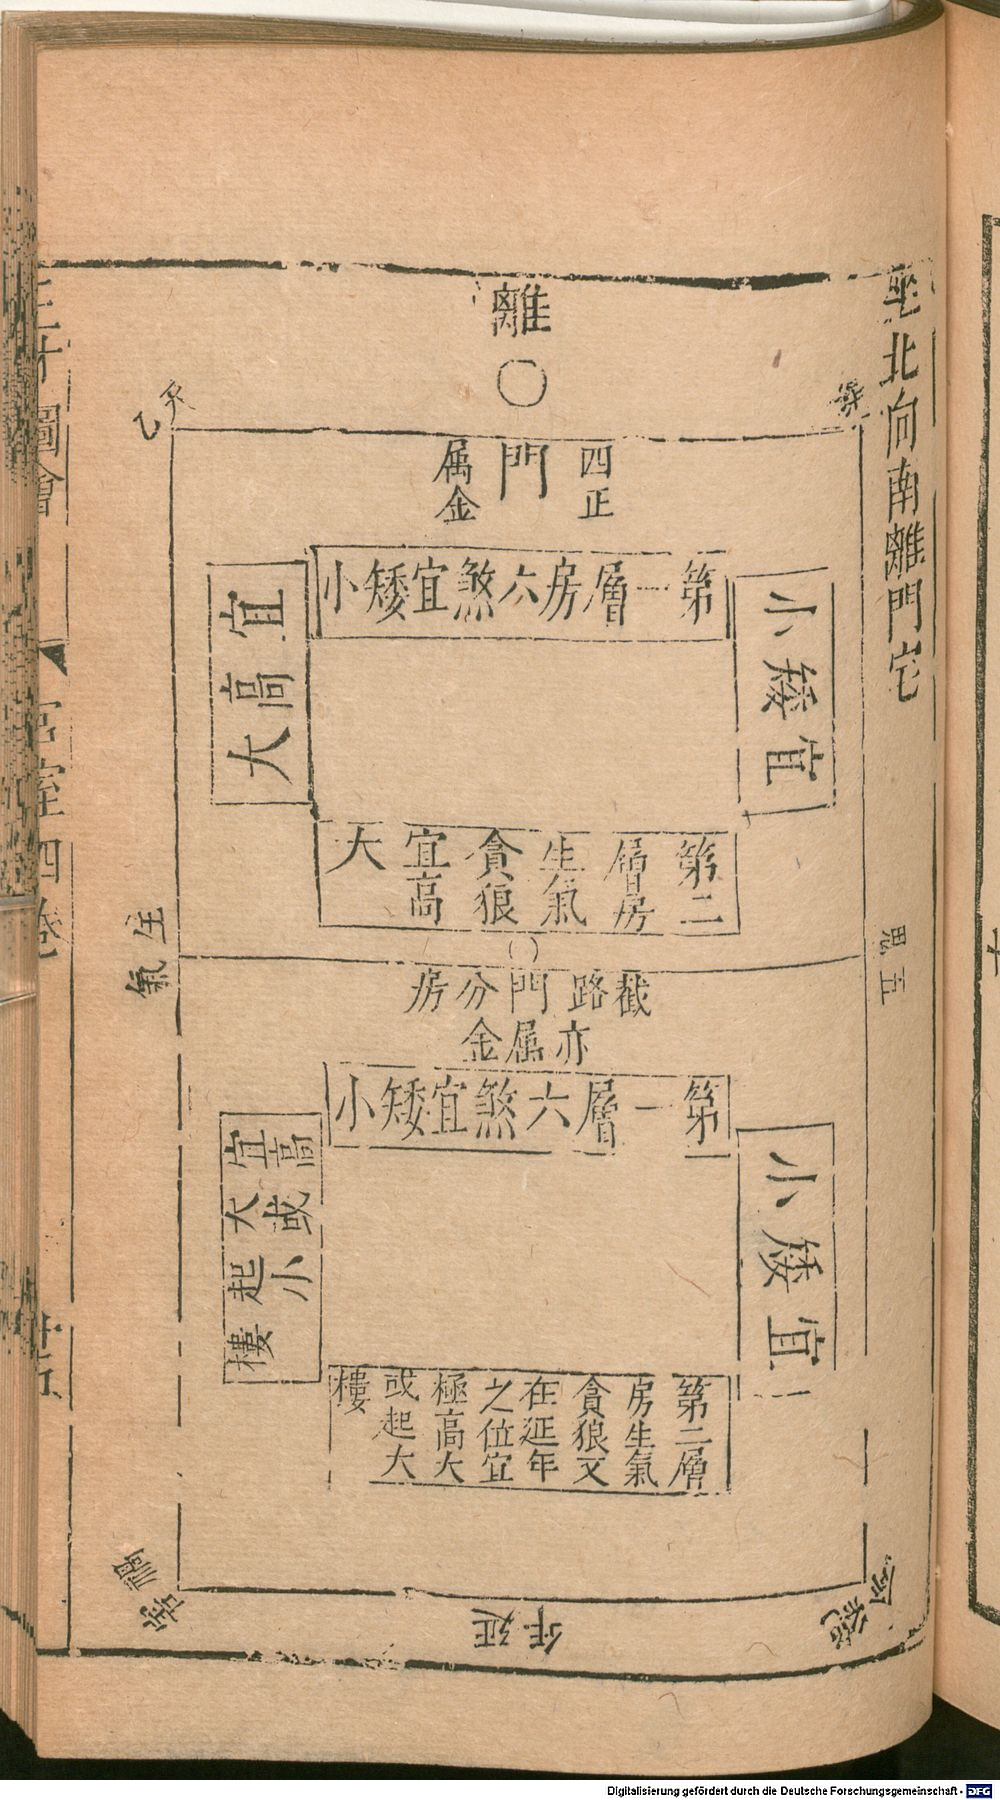 坐北向南離門宅
離
天乙
煞
四正
門
属金
第一層房六煞宜矮小
宜高大
小矮宜
第二層房生氣貪狼宜高大
生氣
五
截路門分房
亦属金
第一層六煞宜矮小
宜高大或小起樓
小矮宜
第二層房生氣貪狼又在延年之位宜極高大或起大樓
禍害
延年
絕命
三才圖會
宮室四卷
Digitalisierung gefördert durch die Deutsche Forschungsgemeinschaft - DFG